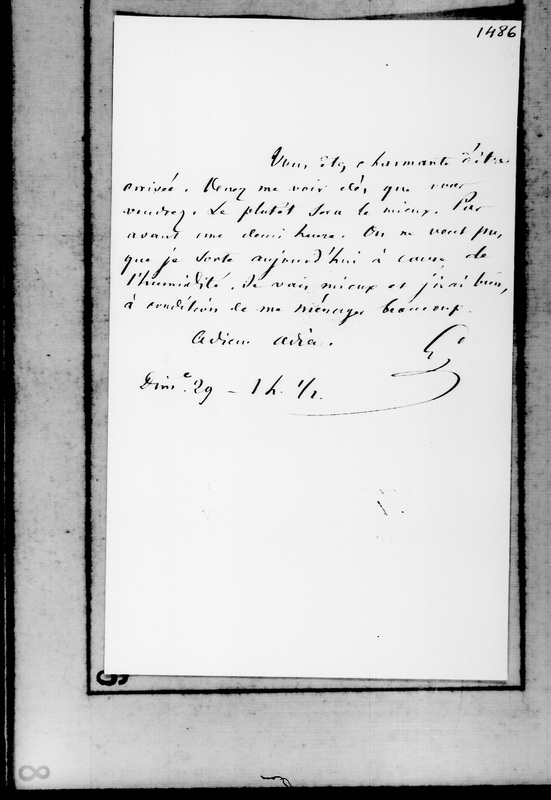 1486
Vous êtes charmante d'être
arrivée. Venez me voir dès que vous
voudrez. Le plutôt sera le mieux. Pas
avant une demi heure. On ne veut pas
que je sorte aujourd'hui à cause de
l'humidité. Je vais mieux et j'irai bien,
à condition de me ménager beaucoup.
Adieu adia.
G
Dim.e 29 – 1 h. 1/2.